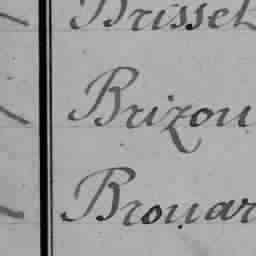 Brisset
Brizou
Brouar